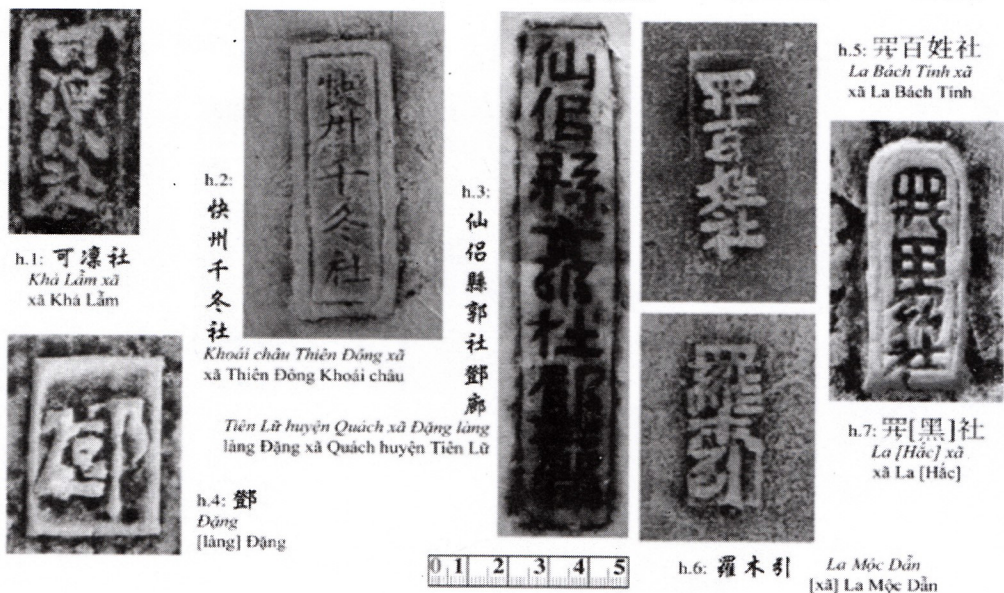 h.1: 可凛社
Khả Lẫm xã
xã Khả Lẫm
快州千冬社
h.2:
快州千冬社
Khoái châu Thiên Đông xã
xã Thiên Đông Khoái châu
仙侣縣郭社
h.3:
仙侣縣郭社鄧廊
Tiên Lữ huyện Quách xã Đặng làng
làng Đặng xã Quách huyện Tiên Lữ
h.4: 鄧
Đặng
[làng] Đặng
百姓社
h.5: 百姓社
La Bách Tính xã
xã La Bách Tính
羅木引
h.6: 羅木引
La Mộc Dẫn
[xã] La Mộc Dẫn
h.7: [黑]社
La [Hắc] xã
xã La [Hắc]
0 1 2 3 4 5